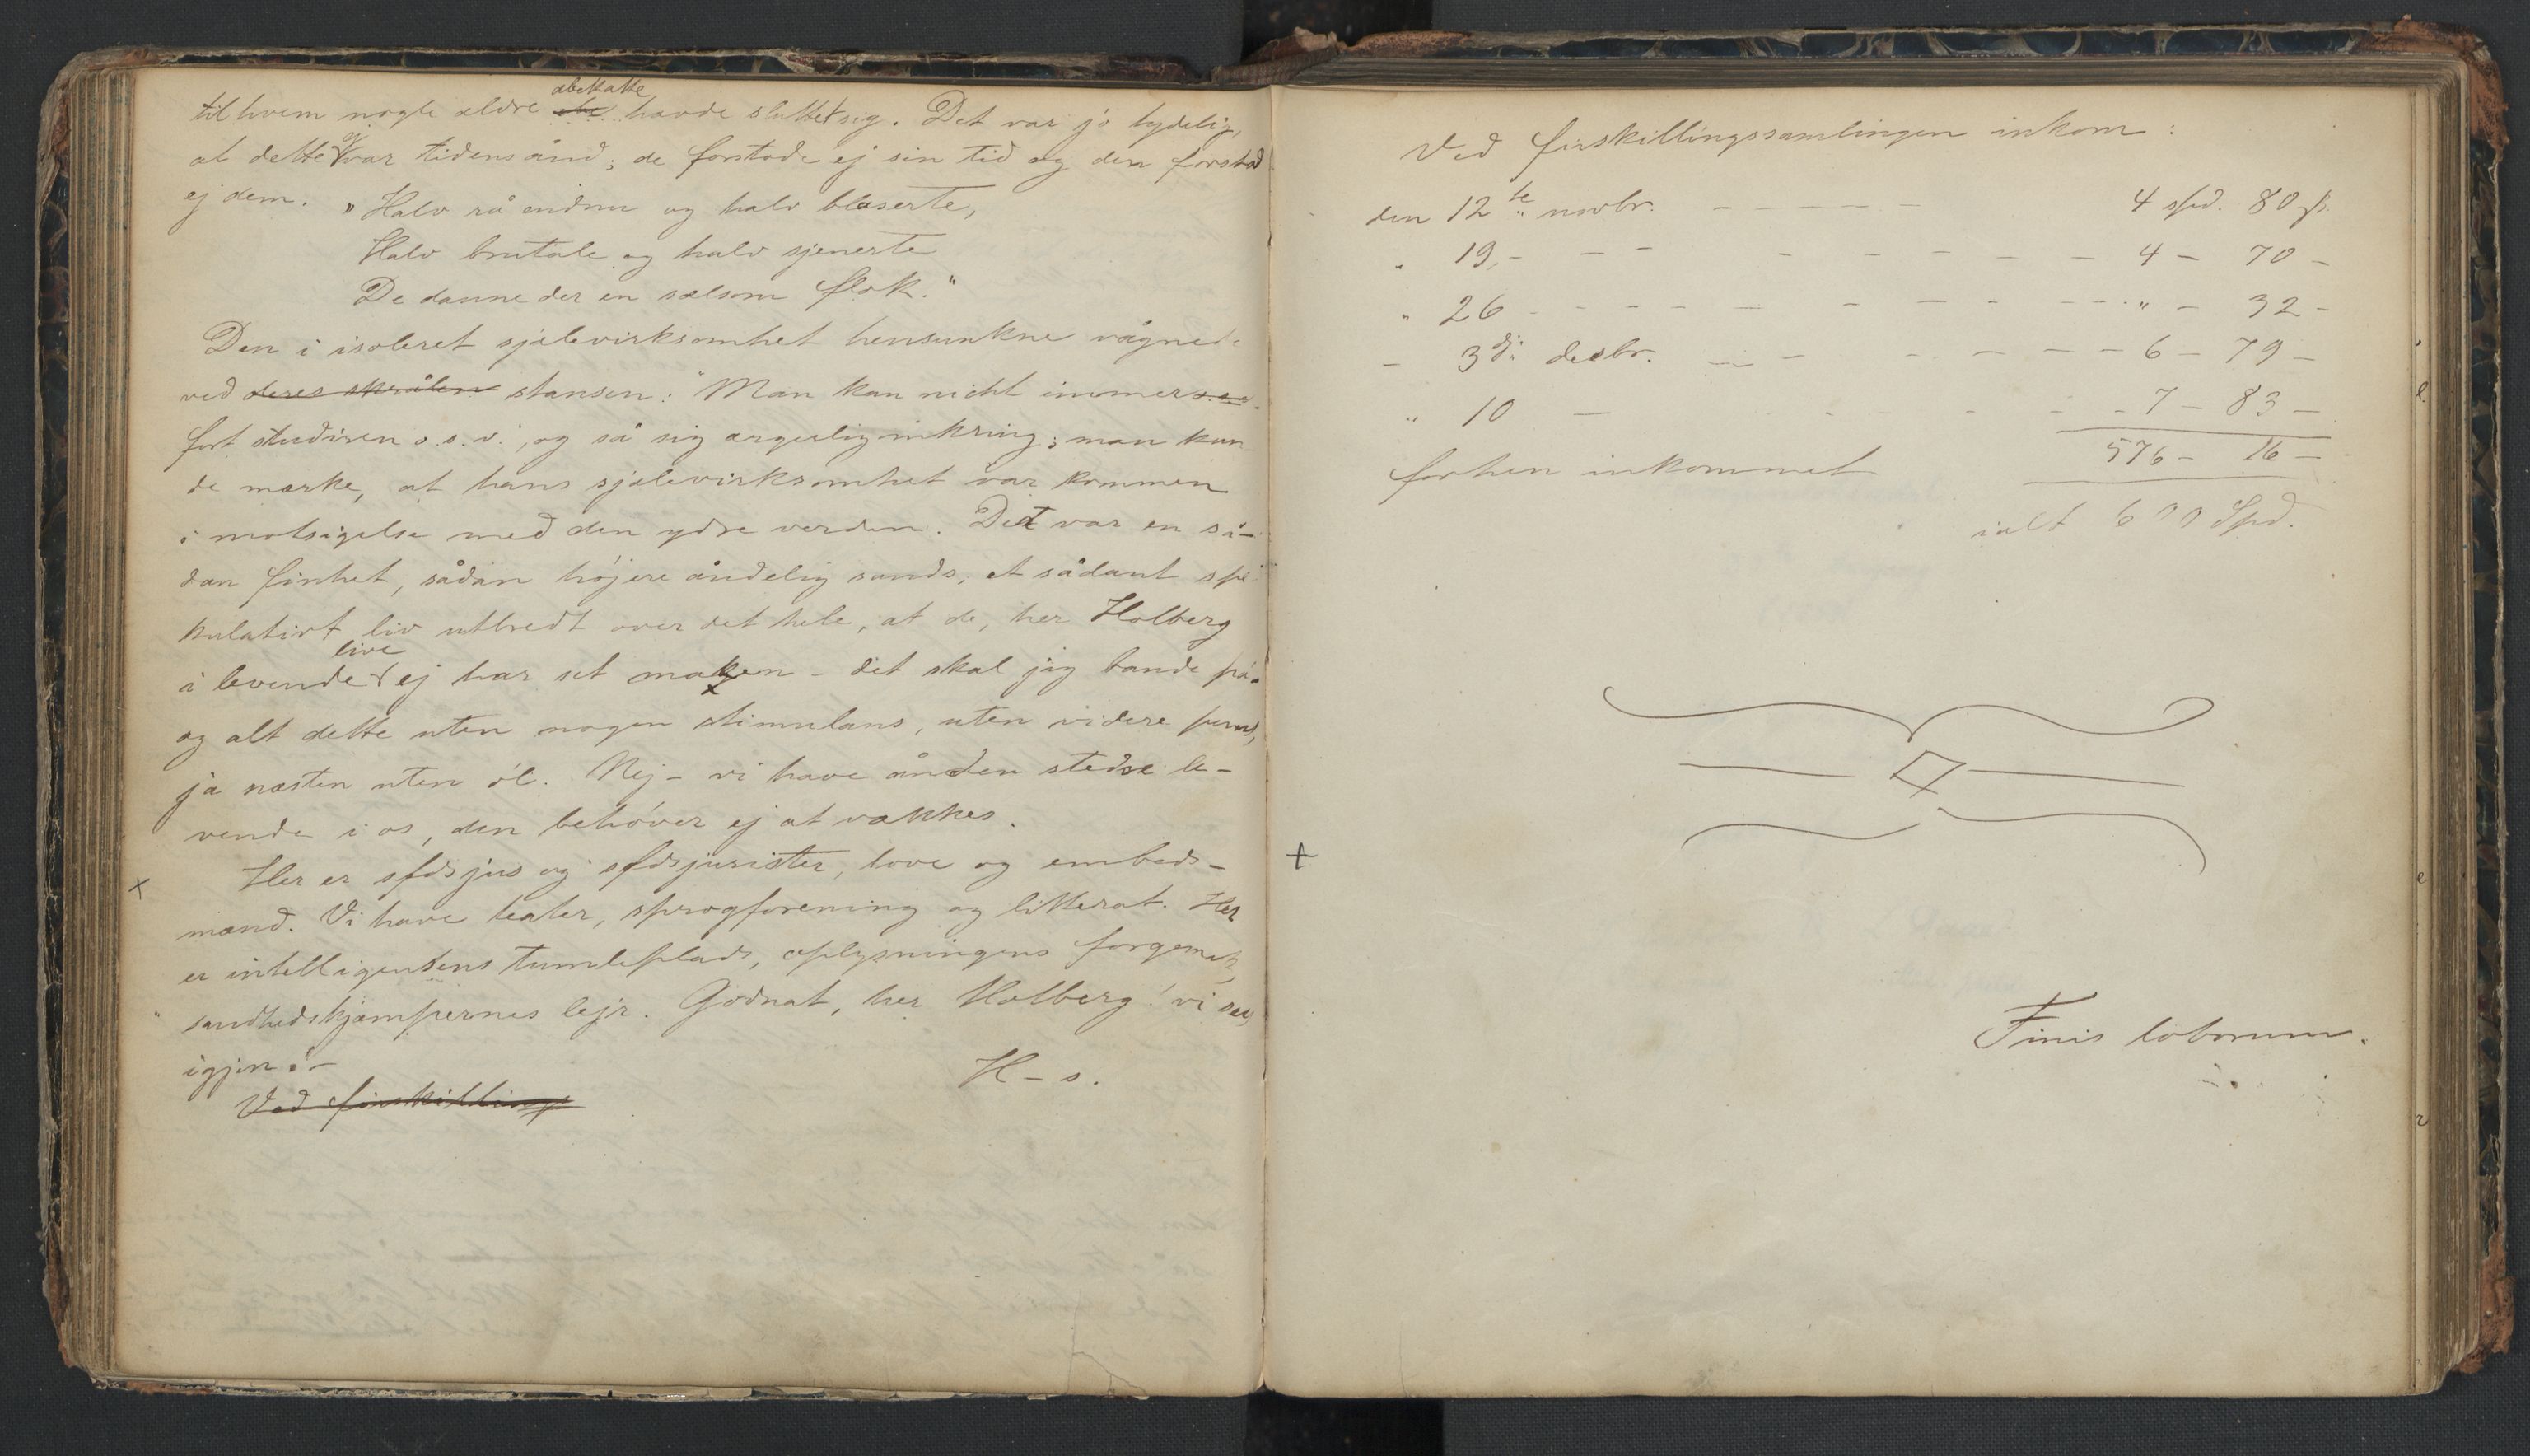 til hvem nogle ældre abekatte havde sluttet sig. Det var jo tydelig,
at dette ej var tidens ånd; de forstode ej sin tid og den forstod
ej dem. "Halv rå endnu og halv blaserte,
Halv brutale og halv sjenerte
De danne der en sælsom flok."
Den i isoleret sjælevirksomhet hensunkne vågnede
ved deres skrålen stansen: "Man kan nicht immer
fort studiren o.s.v., og så sig ærgerlig inkring; man kun-
de mærke, at hans sjælevirksomhet var kommen
i motsigelse med den ydre verden. Det var en så-
dan finhet, sådan højere åndelig sands, et sådant spe-
kulativt liv utbredt over det hele, at de, her Holberg
i levende live ej har set maken – det skal jeg bande på.
og alt dette uten nogen stimulans, uten videre puns,
ja næsten uten öl. Nej – vi have ånden stedse le-
vende i os, den behöver ej at vækkes.
Her er sfdsjus og sfdsjurister, love og embeds-
mænd. Vi have teater, sprogforening og litterat. Her
er intelligensens tumleplads, oplysningens forgemak,
sandhedskjæmpernes lejr. Godnat, her Holberg! vi sees
igjen! –
H – s.
Ved firskillings
Ved firskillingssamlingen inkom:
den 12te novbr. – – – – – 4 spd. 80 ß.
" 19 – – – – – – – – – 4 – 70 –
" 26 – – – – – – – – – " – 32 –
– 3dj: desbr. – – – – – – – 6 – 79 –
" 10 – – – – – – 7 – 83 –
forhen inkommet 576 – 16 –
ialt 600 Spd.
Finis laborum.